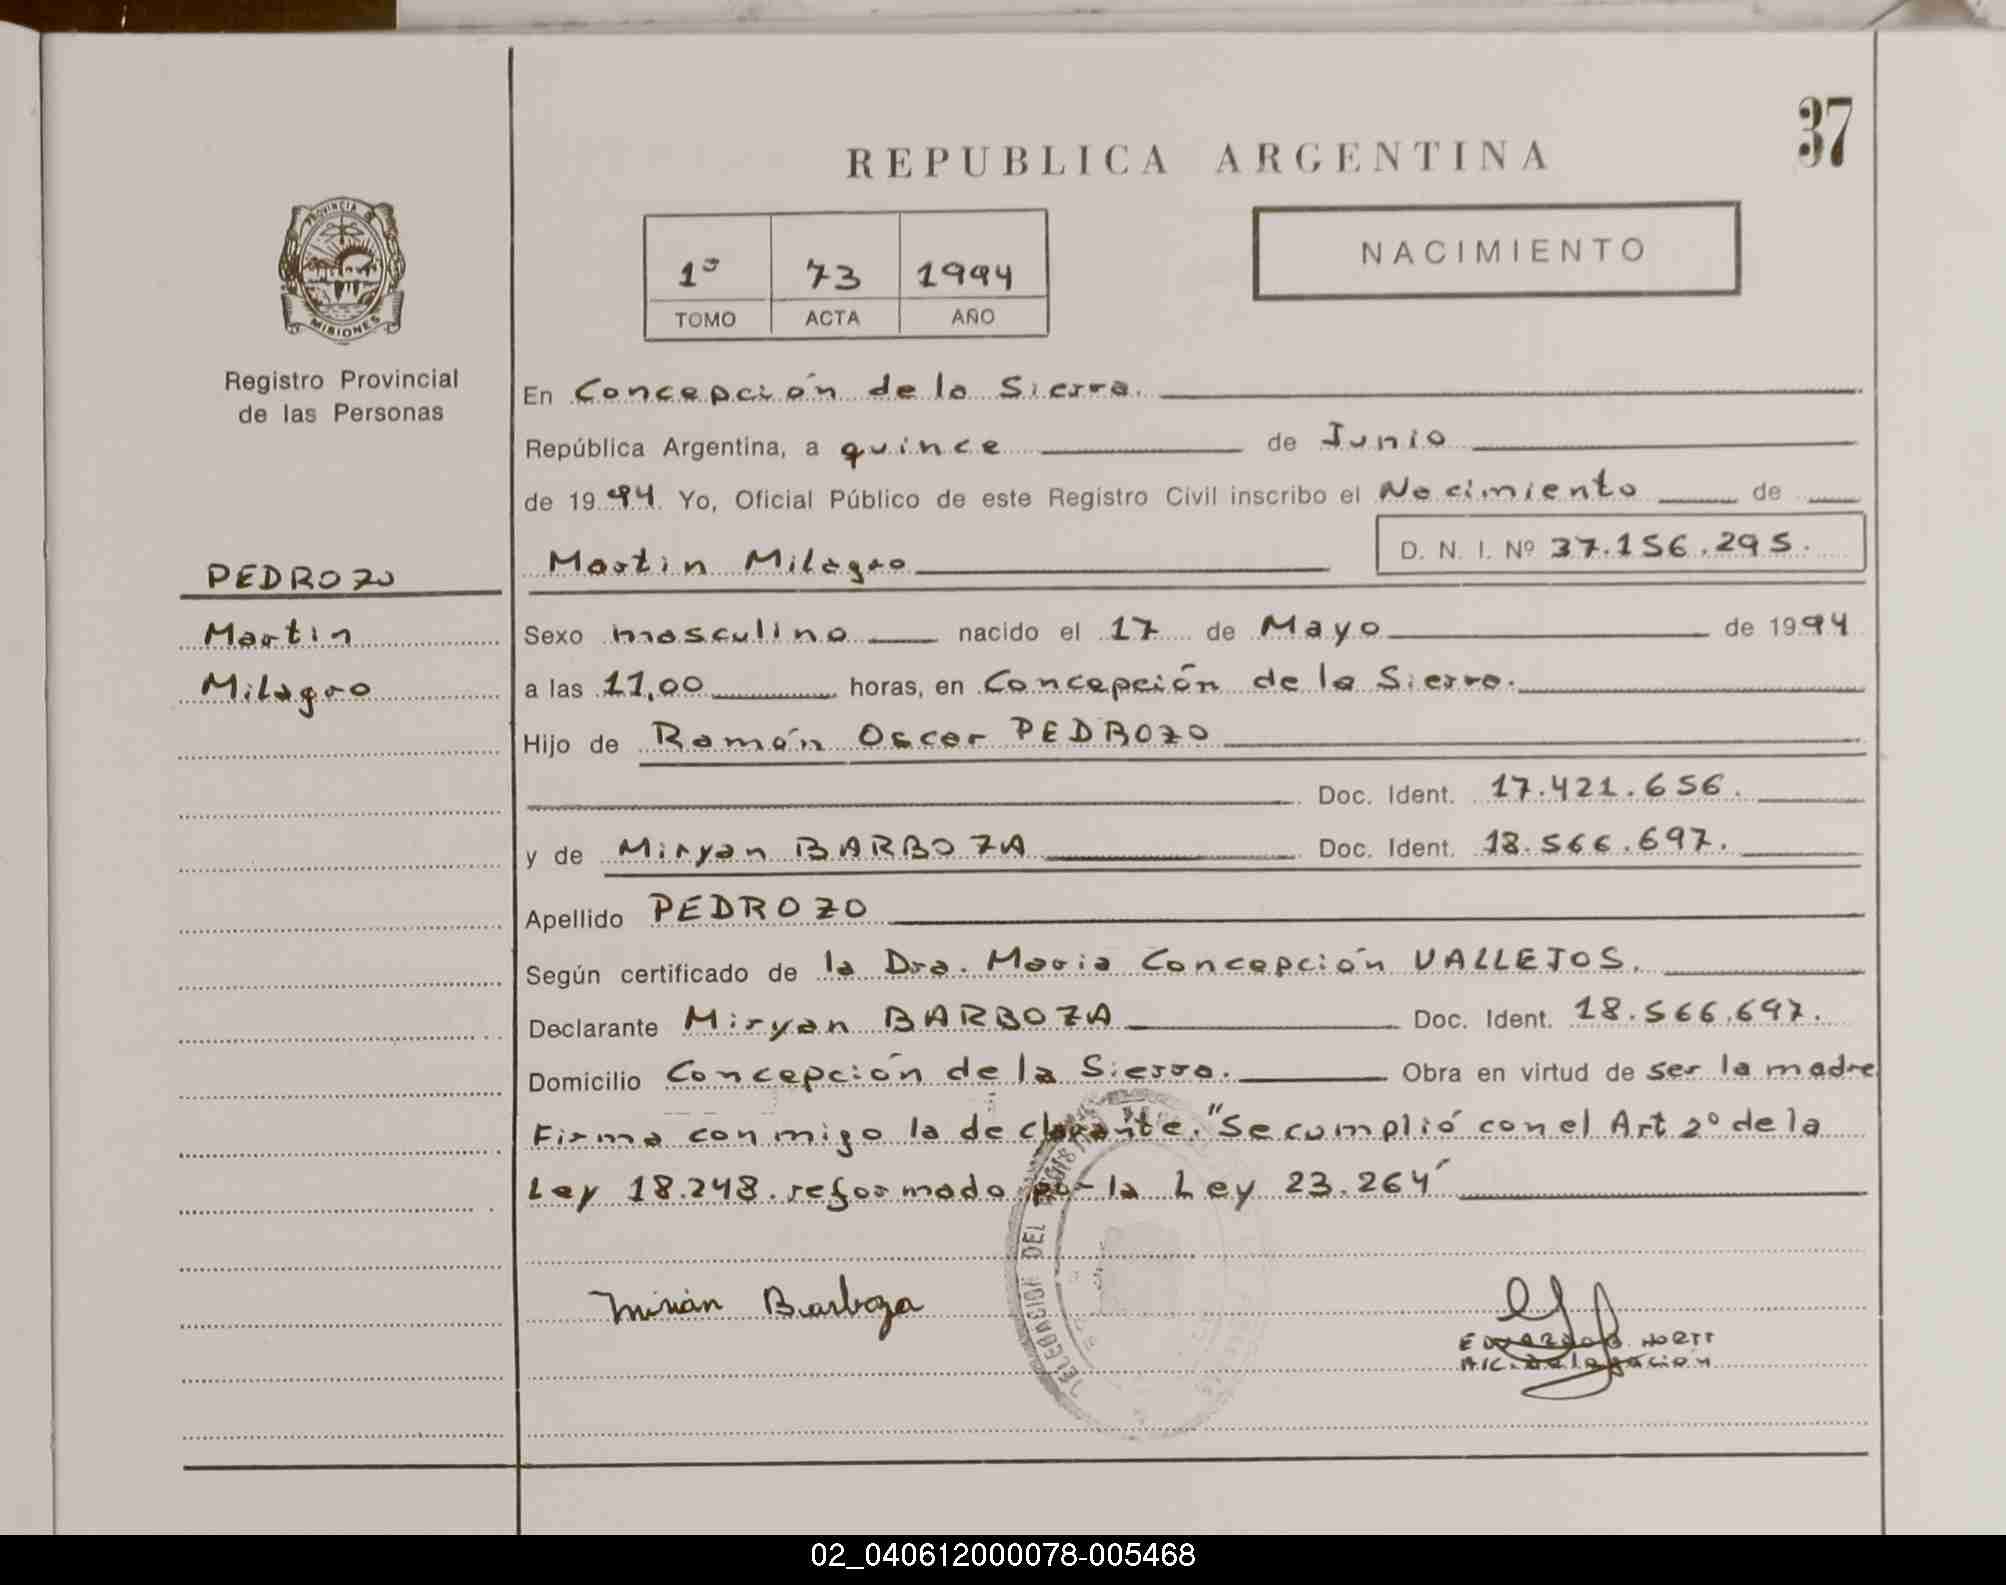 37
REPUBLICA ARGENTINA
PROVINCIA DE
MISIONES
Registro Provincial
de las Personas
NACIMIENTO
1º 73 1994
TOMO ACTA AÑO
En Concepción de la Sierra.
República Argentina, a quince de Junio
de 1994. Yo, Oficial Público de este Registro Civil inscribo el Nacimiento de
PEDROZO
Martin
Milagro
Martin Milagro D. N. I. Nº 37.156.295.
Sexo masculino nacido el 17 de Mayo de 1994
a las 11,00 horas, en Concepción de la Sierra.
Hijo de Ramón Oscar PEDROZO
Doc. Ident. 17.421.656.
y de Miryan BARBOZA Doc. Ident. 18.566.697.
Apellido PEDROZO
Según certificado de la Dra. Maria Concepción VALLEJOS.
Declarante Miryan BARBOZA Doc. Ident. 18.566.697.
Domicilio Concepción de la Sierra. Obra en virtud de ser la madre
Firma conmigo la declarante. "Se cumplió con el Art 2º de la
Ley 18.248. reformado por la Ley 23.264"
DELEGACION DEL
Mirian Barboza
A/C. Delegación
02_040612000078-005468